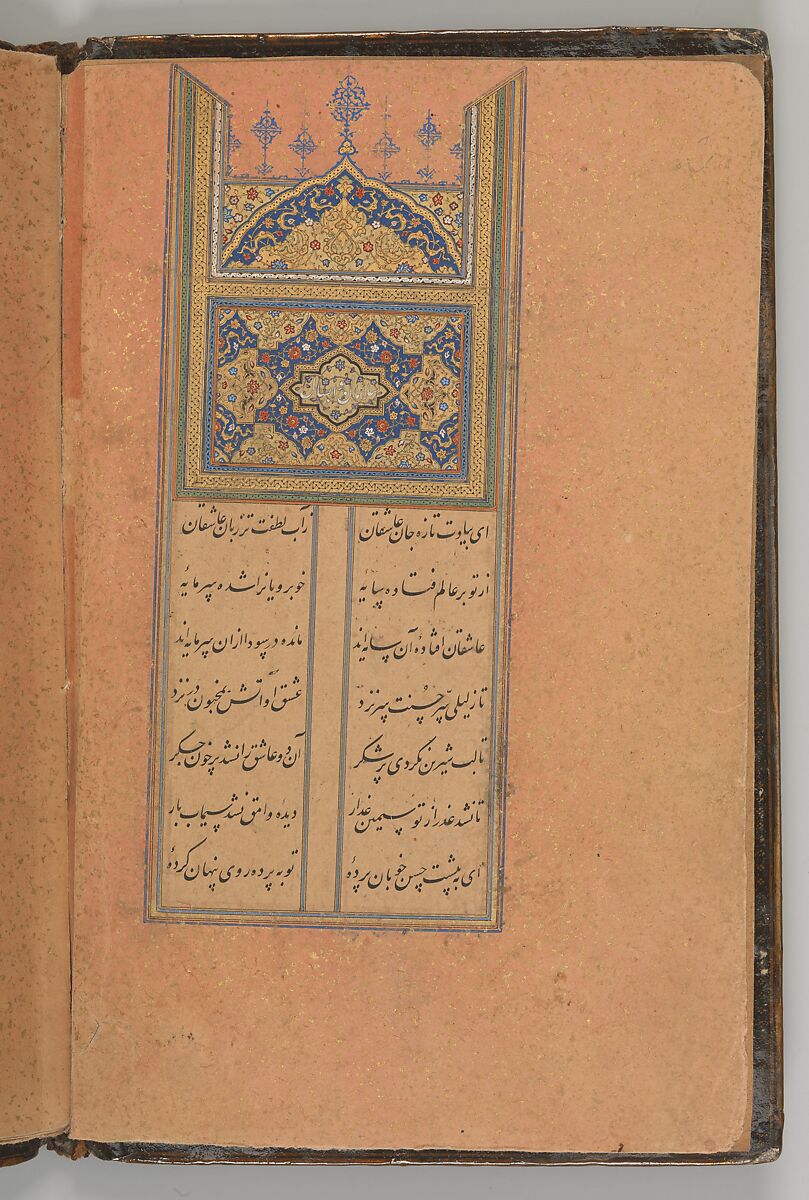 ای بیادت تازه جان عاشقان زآب لطفت تر زبان عاشقان
از تو بر عالم فتاده سایهٔ خوبرویانرا شده سرمایهٔ
عاشقان افتادهٔ آن سایه‌اند مانده در سودا ازان سرمایه‌اند
تا ز لیلی سرّ حسنت سر نزد عشق او آتش بمجنون در نزد
تا لب شیرین نکردی پرشکر آن دو عاشق را نشد پرخون جگر
تا نشد عذرا ز تو سیمین عذار دیدهٔ وامق نشد سیماب بار
ای به پیشت حسن خوبان پردهٔ تو به پرده روی پنهان کردهٔ